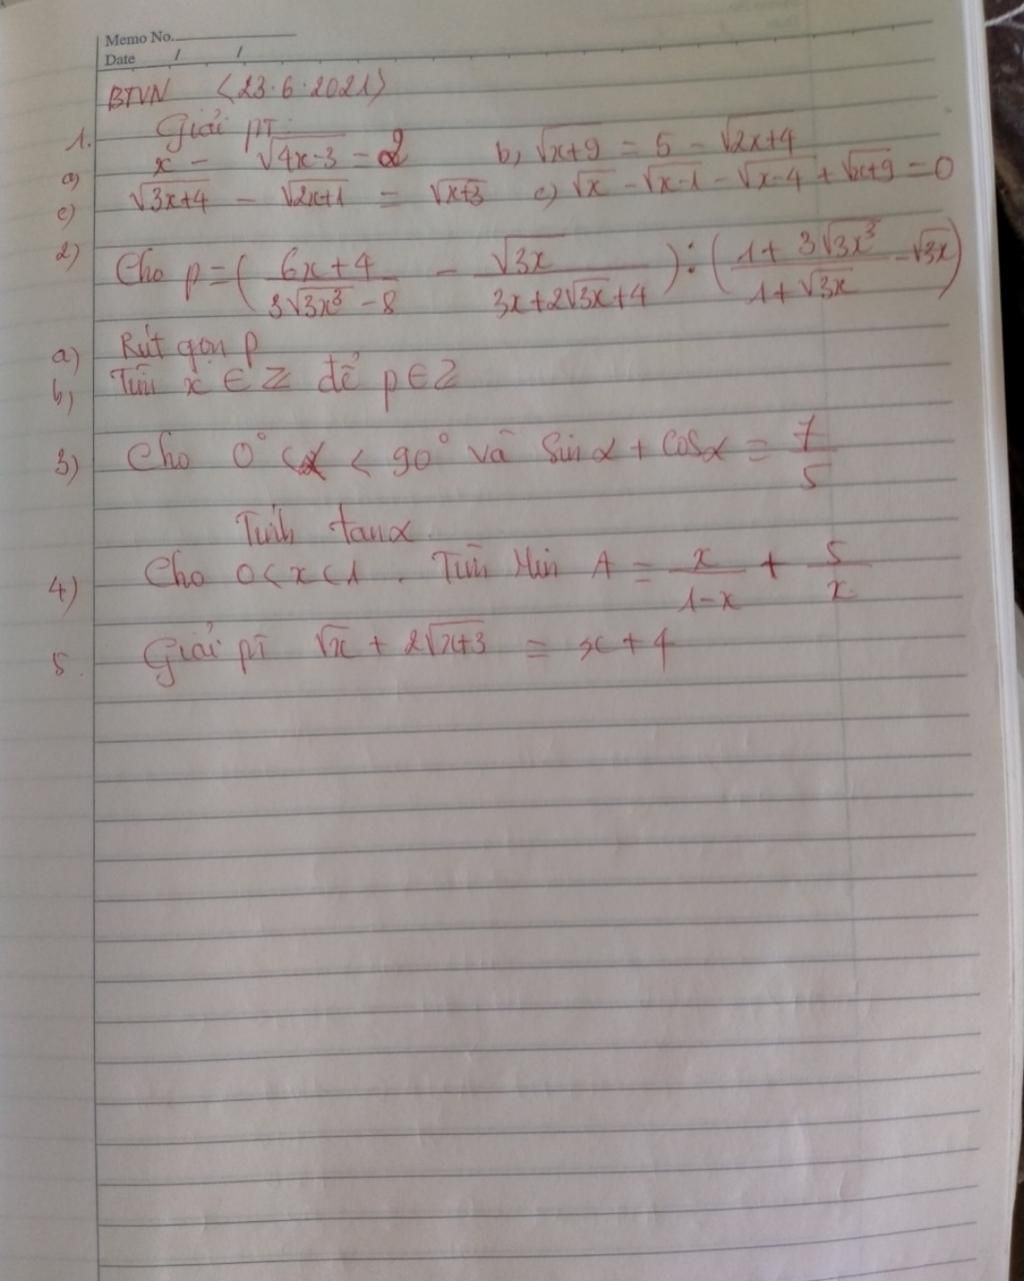 Memo No.
Date / /
BTVN (23.6.2021)
1. Giải pt:
a) x - √(4x-3) = 2 b, √(x+9) = 5 - √(2x+4)
c) √(3x+4) - √(2x+1) = √(x+3) c) √x - √(x-1) - √(x-4) + √(x+9) = 0
2) Cho p = ( (6x+4)/(3√(3x³) - 8) - √(3x)/(3x+2√(3x)+4) ) : ( (1+3√(3x³))/(1+√(3x)) - √(3x) )
a) Rút gọn P
b, Tìm x ∈ Z để p ∈ Z
3) Cho 0° < α < 90° và Sin α + cosα = 7/5
Tính tanα.
4) Cho 0 < x < 1. Tìm Min A = x/(1-x) + 5/x
5. Giải pt √x + 2√(x+3) = x + 4